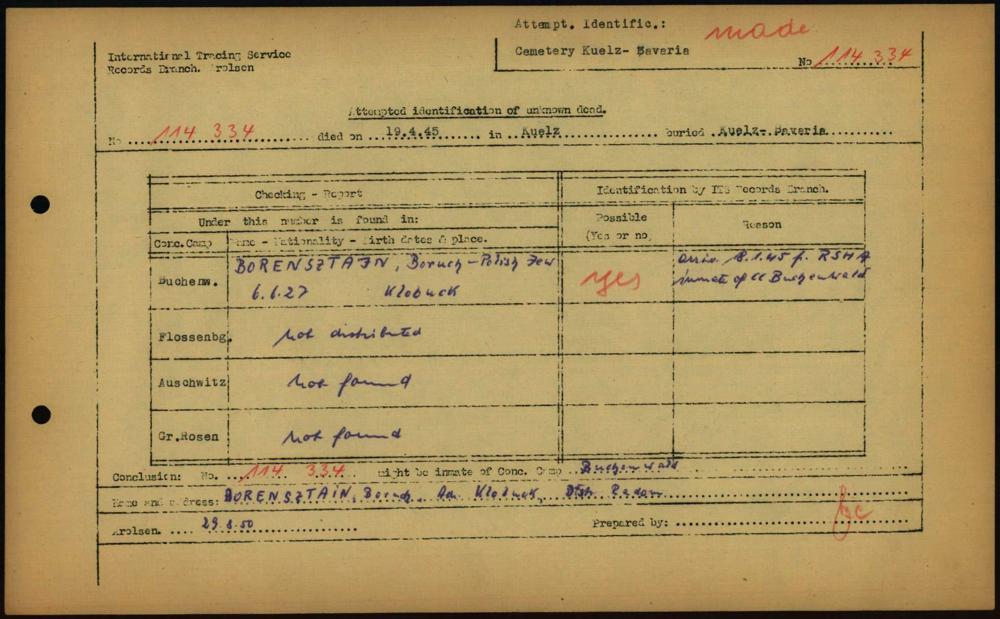 Attempt. Identific.: made
Cemetery Kuelz- Bavaria
No 114 334
International Tracing Service
Records Branch. Arolsen
Attempted identification of unknown dead.
No 114 334 died on 19.4.45 in Kuelz buried Kuelz- Bavaria
Checking - Report
Identification by ITS Records Branch.
Under this number is found in:
Possible (Yes or no)
Reason
Conc.Camp
Name - Nationality - Birth dates & place.
Buchenw.
BORENSZTAJN, Boruch - Polish Jew
6.6.27 Klobuck
yes
arriv. 18.1.45 f. RSHA
inmate of CC Buchenwald
Flossenbg.
not distributed
Auschwitz
not found
Gr.Rosen
not found
Conclusion: No. 114 334 might be inmate of Conc. Camp Buchenwald
Name and address: BORENSZTAIN, Boruch, Klobuck, Radom
Arolsen. 29.8.50
Prepared by: